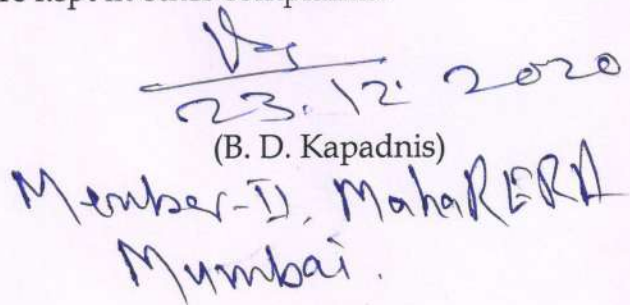 kept in
23.12.2020
(B. D. Kapadnis)
Member-II, MahaRERA
Mumbai.